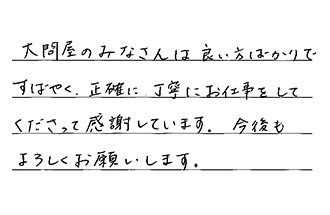 大問屋のみなさんは良い方ばかりで
すばやく、正確に丁寧にお仕事をして
くださって感謝しています。今後も
よろしくお願いします。